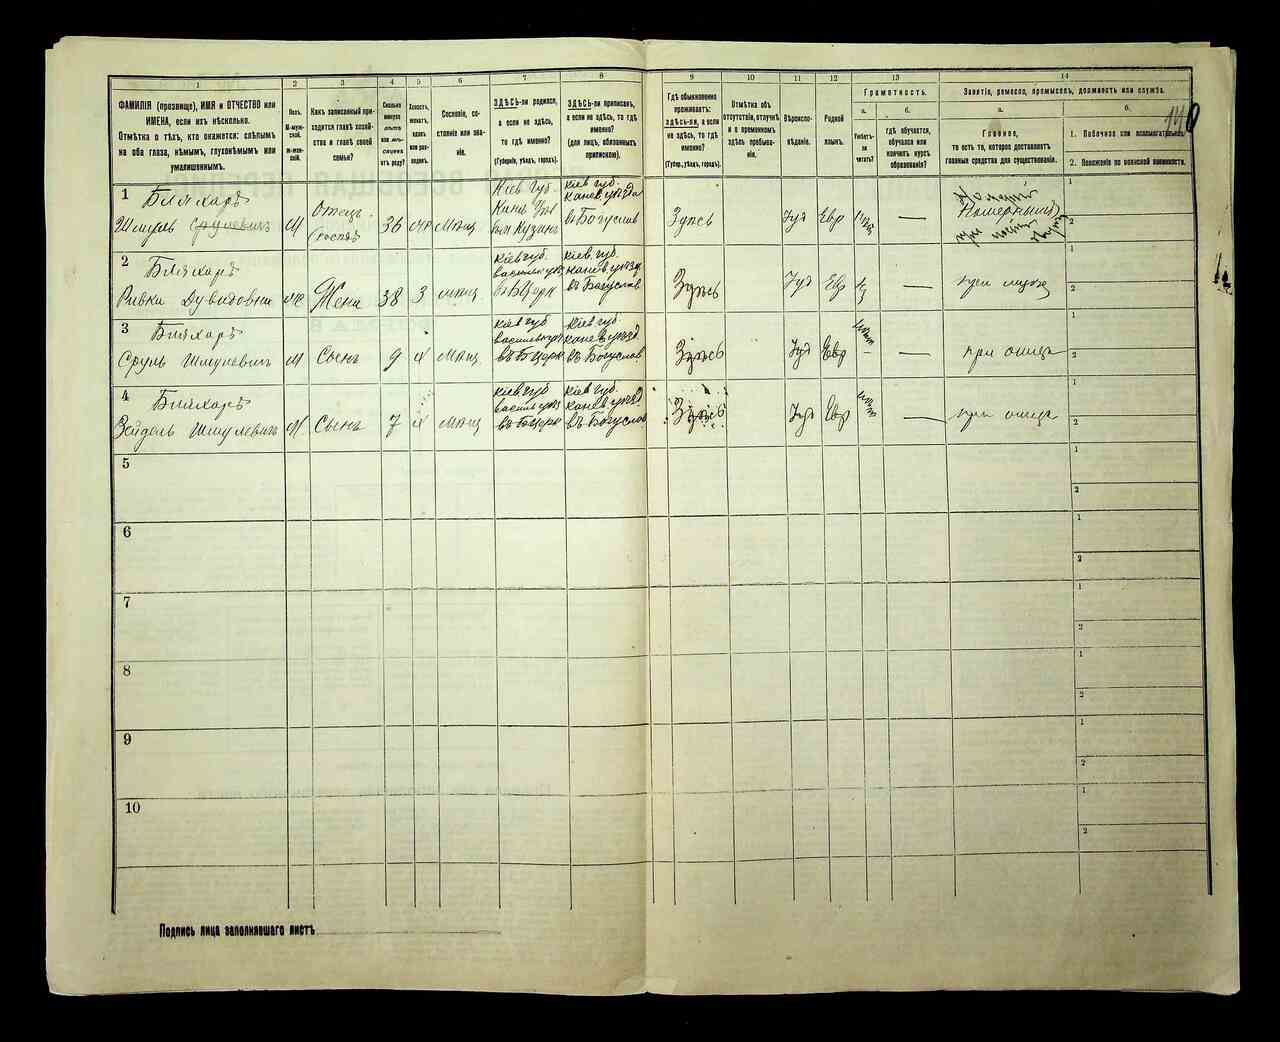 1 2 3 4 5 6 7 8 9 10 11 12 13 14
ФАМИЛІЯ (прозвище), ИМЯ и ОТЧЕСТВО или
ИМЕНА, если ихъ нѣсколько.
Отмѣтка о тѣхъ, кто окажется: слѣпымъ
на оба глаза, нѣмымъ, глухонѣмымъ или
умалишеннымъ.
Полъ.
М-муж-
ской.
Ж-жен-
скій.
Какъ записанный при-
ходится главѣ хозяй-
ства и главѣ своей
семьи?
Сколько
минуло
лѣтъ
или мѣ-
сяцевъ
отъ роду?
Холостъ,
женатъ,
вдовъ
или раз-
веденъ.
Сословіе, со-
стояніе или зва-
ніе.
ЗДѢСЬ-ли родился,
а если не здѣсь,
то гдѣ именно?
(Губернія, уѣздъ, городъ).
ЗДѢСЬ-ли приписанъ,
а если не здѣсь, то гдѣ
именно?
(для лицъ, обязанныхъ
припискою).
Гдѣ обыкновенно
проживаетъ:
здѣсь-ли, а если
не здѣсь, то гдѣ
именно?
(Губер., уѣздъ, городъ).
Отмѣтка объ
отсутствіи, отлучкѣ
и о временномъ
здѣсь пребыва-
ніи.
Вѣроиспо-
вѣданіе.
Родной
языкъ.
Грамотность.
а.
Умѣетъ-
ли
читать?
б.
гдѣ обучается,
обучался или
кончилъ курсъ
образованія?
Занятіе, ремесло, промыселъ, должность или служба.
а.
Главное,
то есть то, которое доставляетъ
главныя средства для существованія.
б.
1. Побочное или вспомогательное.
2. Положеніе по воинской повинности.
140
1 Бляхаръ
Шмуль Срулевичъ М Отецъ 36 Мѣщ
Кіев губ.
Кіев губ.
Канев уѣзда
въ Богуслав
Здѣсь Іуд Евр —
1
2
2 Бляхаръ
Ривка Дувидовна Жена 38 З мѣщ
Кіев губ.
васильк уѣз
въ БЦерк
Кіев губ.
Канев уѣзд
въ Богуслав
Здѣсь Іуд Евр — при мужѣ
1
2
3 Бляхаръ
Сруль Шмулевичъ М Сынъ 9 Х Мѣщ
Кіев губ
васильк уѣз
въ БЦерк
Кіев губ.
Канев уѣзд
въ Богуслав
Здѣсь Іуд Евр — при отцѣ
1
2
4 Бляхаръ
Зейдель Шмулевичъ М Сынъ 7 Х мѣщ
Кіев губ
васильк уѣз
въ БЦерк
Кіев губ.
Канев уѣзд
въ Богуслав
Здѣсь Іуд Евр — при отцѣ
1
2
5
1
2
6
1
2
7
1
2
8
1
2
9
1
2
10
1
2
Подпись лица заполнявшаго листъ